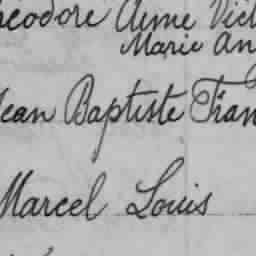 heodore Aimé Vict
Marie An
Jean Baptiste Fran
Marcel Louis